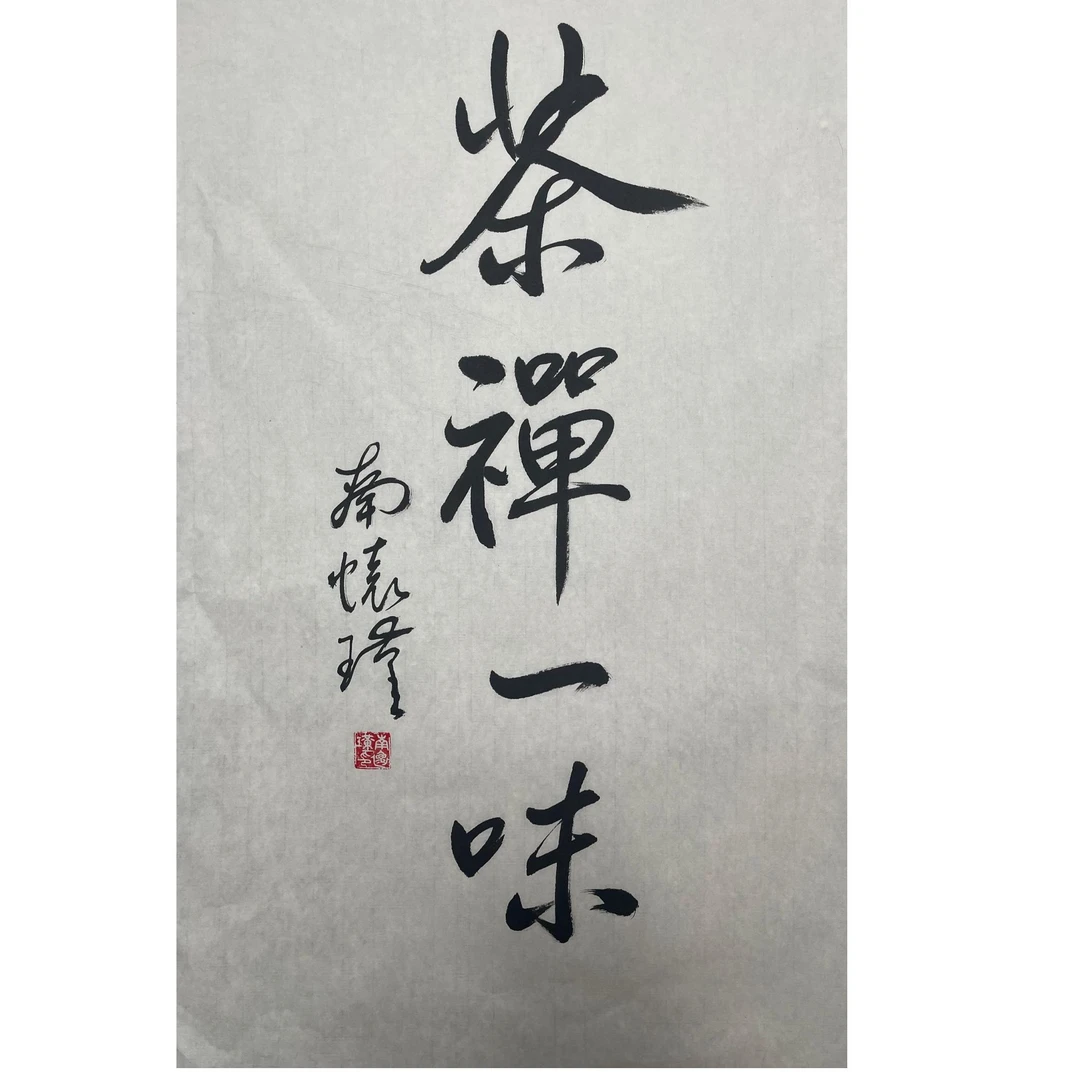 茶禪一味
南懷瑾